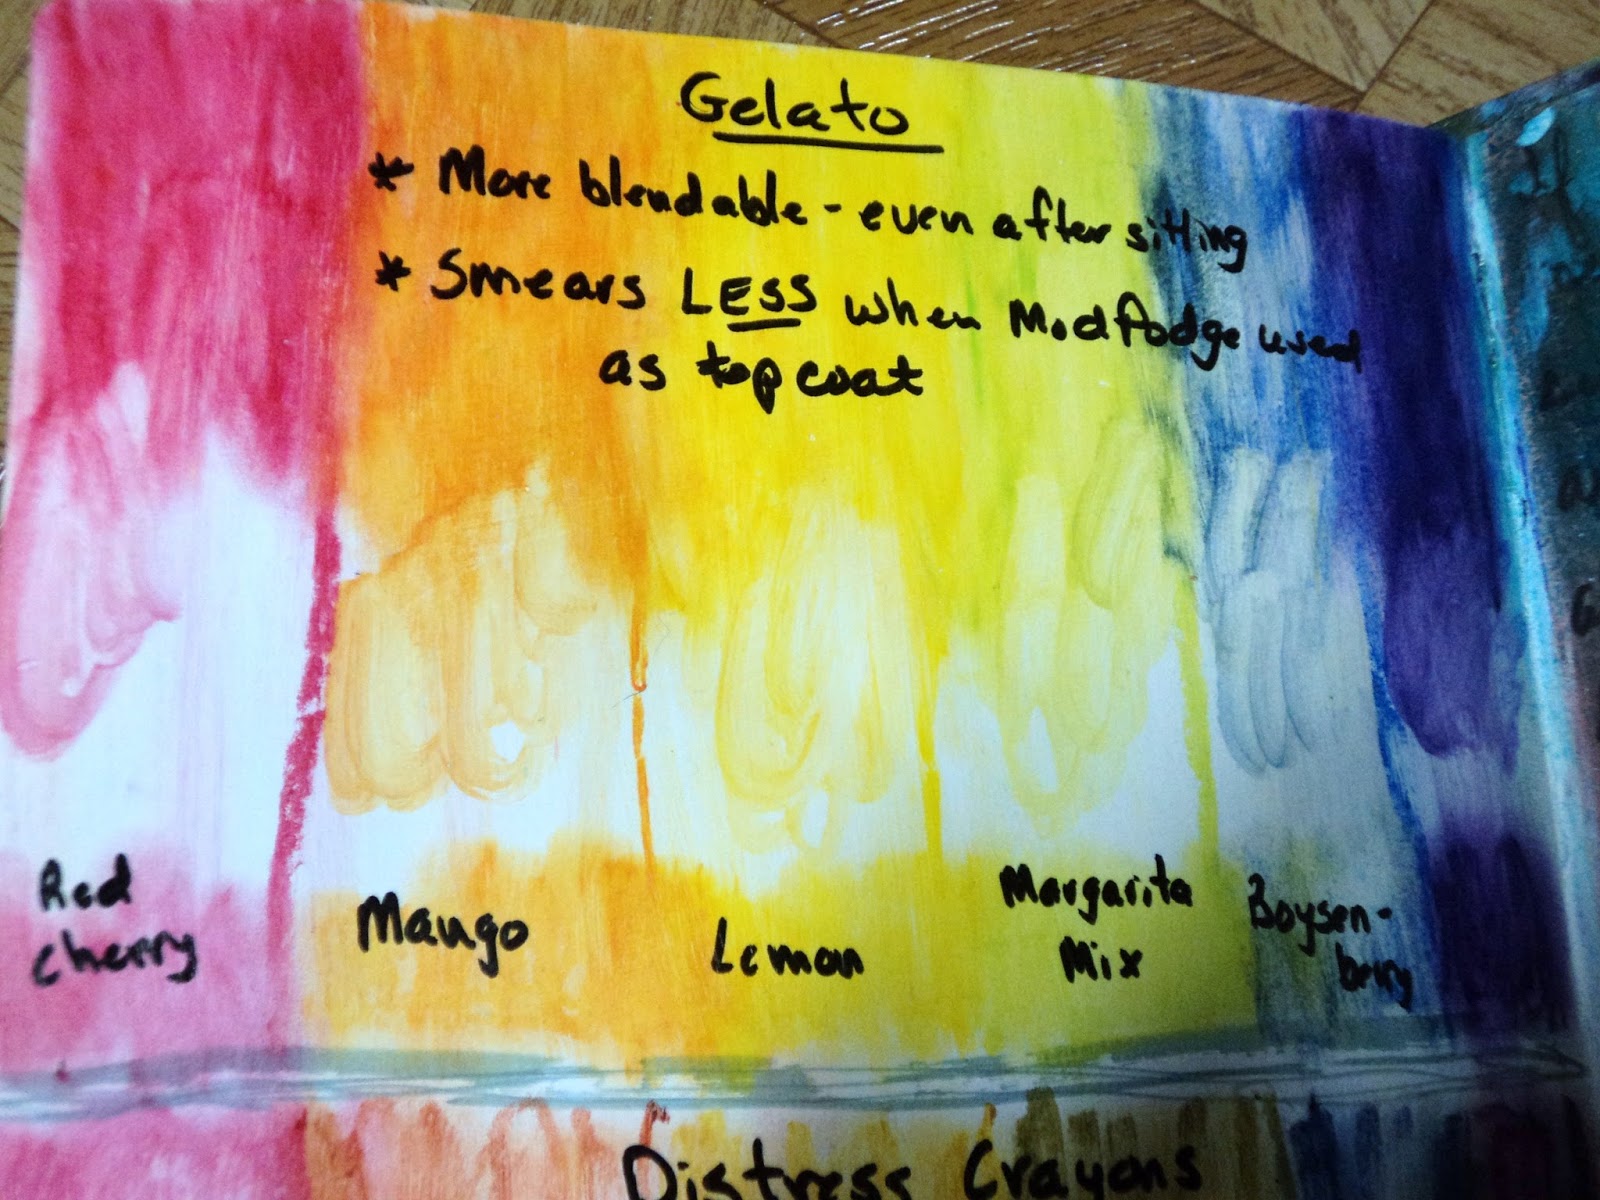 Gelato
* More blendable - even after sitting
* Smears LESS when Modpodge used
as top coat
Red
cherry
Mango
Lemon
Margarita
Mix
Boysen-
berry
Distress Crayons